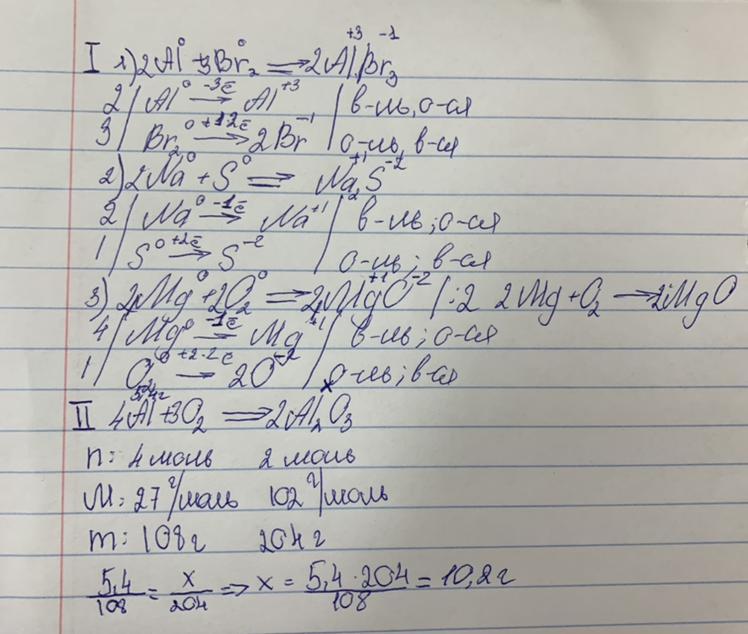 I 1) 2Al⁰ + 3Br₂⁰ ⟹ 2Al⁺³Br₃⁻¹
2 | Al⁰ −3ē → Al⁺³ | в-ль, о-ся
3 | Br₂⁰ +1·2ē → 2Br⁻¹ | о-ль, в-ся
2) 2Na⁰ + S⁰ ⟹ Na₂⁺¹S⁻²
2 | Na⁰ −1ē → Na⁺¹ | в-ль; о-ся
1 | S⁰ +2ē → S⁻² | о-ль; в-ся
3) Mg⁰ + O₂⁰ ⟹ Mg⁺¹O⁻² | :2 2Mg + O₂ → 2MgO
4 | Mg⁰ −1ē → Mg⁺¹ | в-ль; о-ся
1 | O₂⁰ +2·2ē → 2O⁻² | о-ль; в-ся
5,4г x
II 4Al + 3O₂ ⟹ 2Al₂O₃
n: 4 моль 2 моль
M: 27 г/моль 102 г/моль
m: 108 г 204 г
5,4/108 = x/204 => x = 5,4·204/108 = 10,2 г